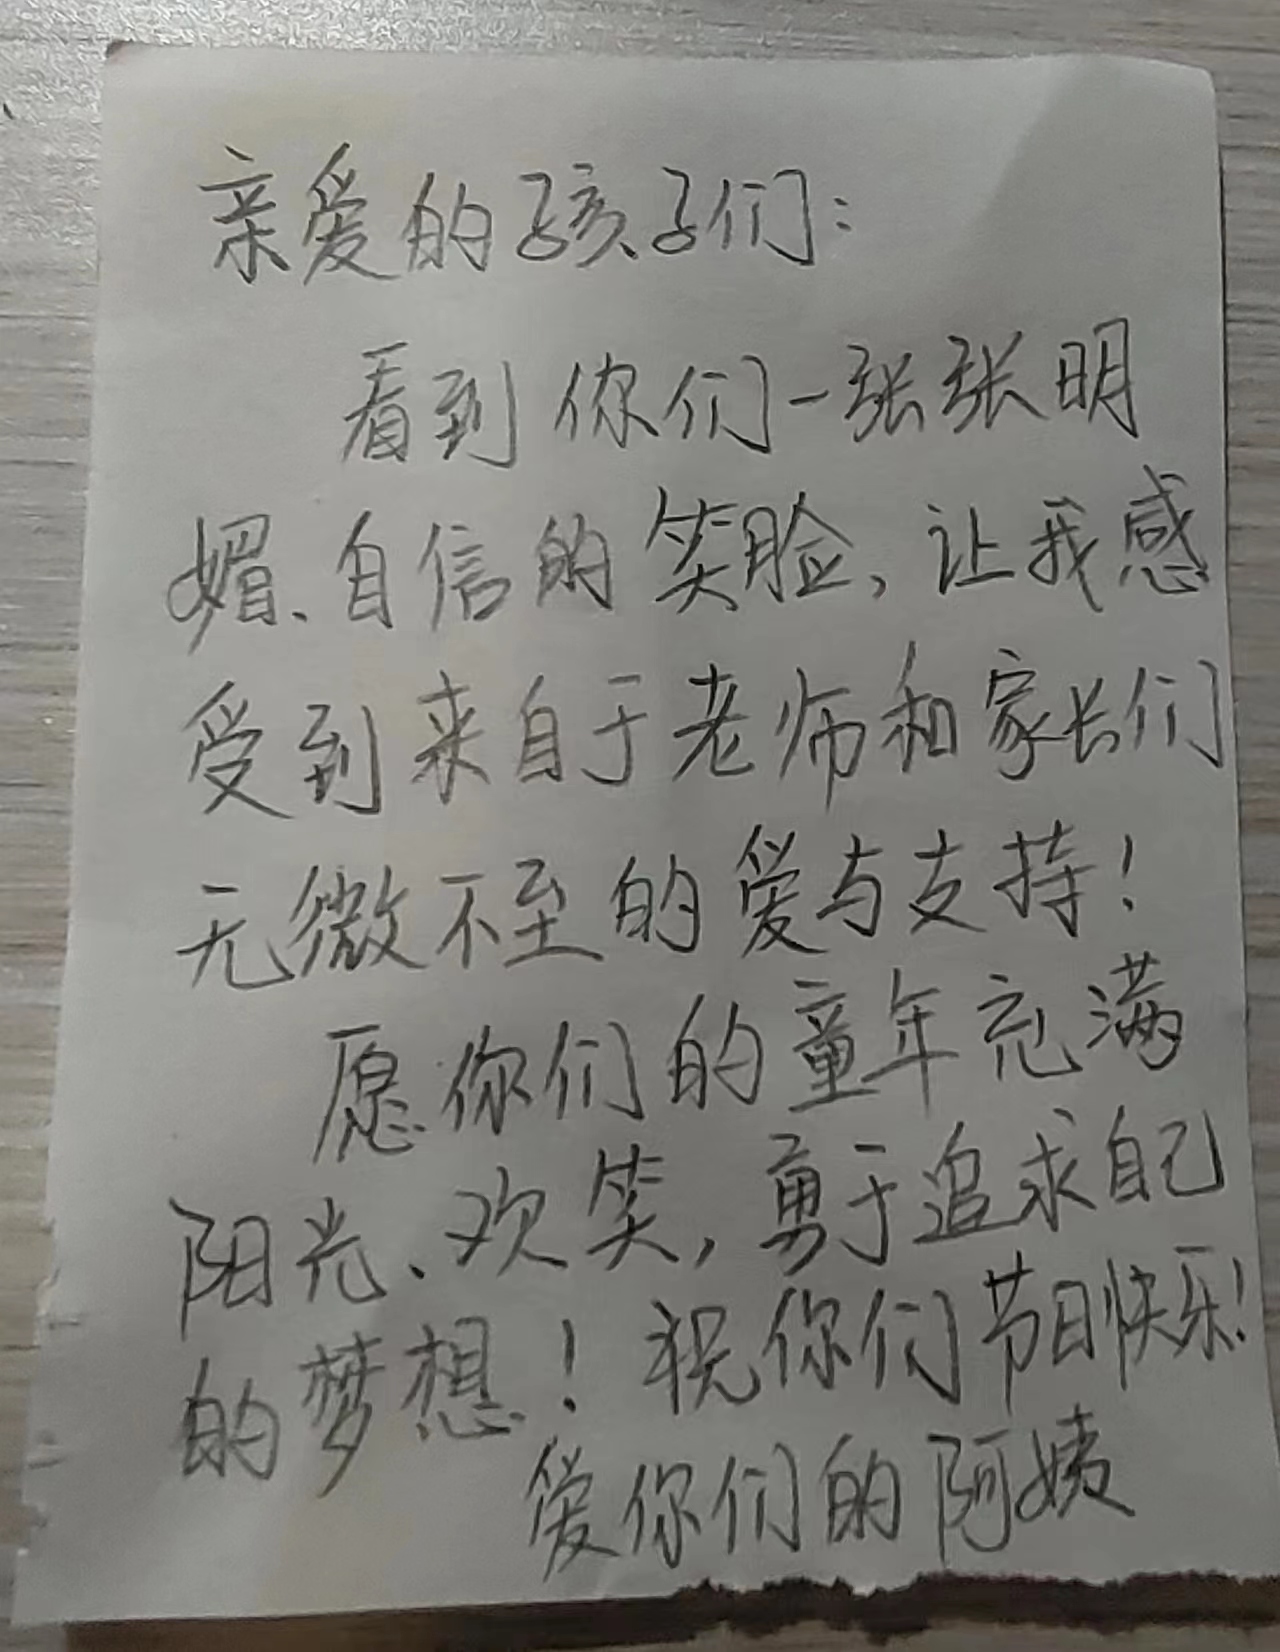 亲爱的孩子们:
看到你们一张张明
媚、自信的笑脸,让我感
受到来自于老师和家长们
无微不至的爱与支持!
愿你们的童年充满
阳光、欢笑,勇于追求自己
的梦想!祝你们节日快乐!
爱你们的阿姨